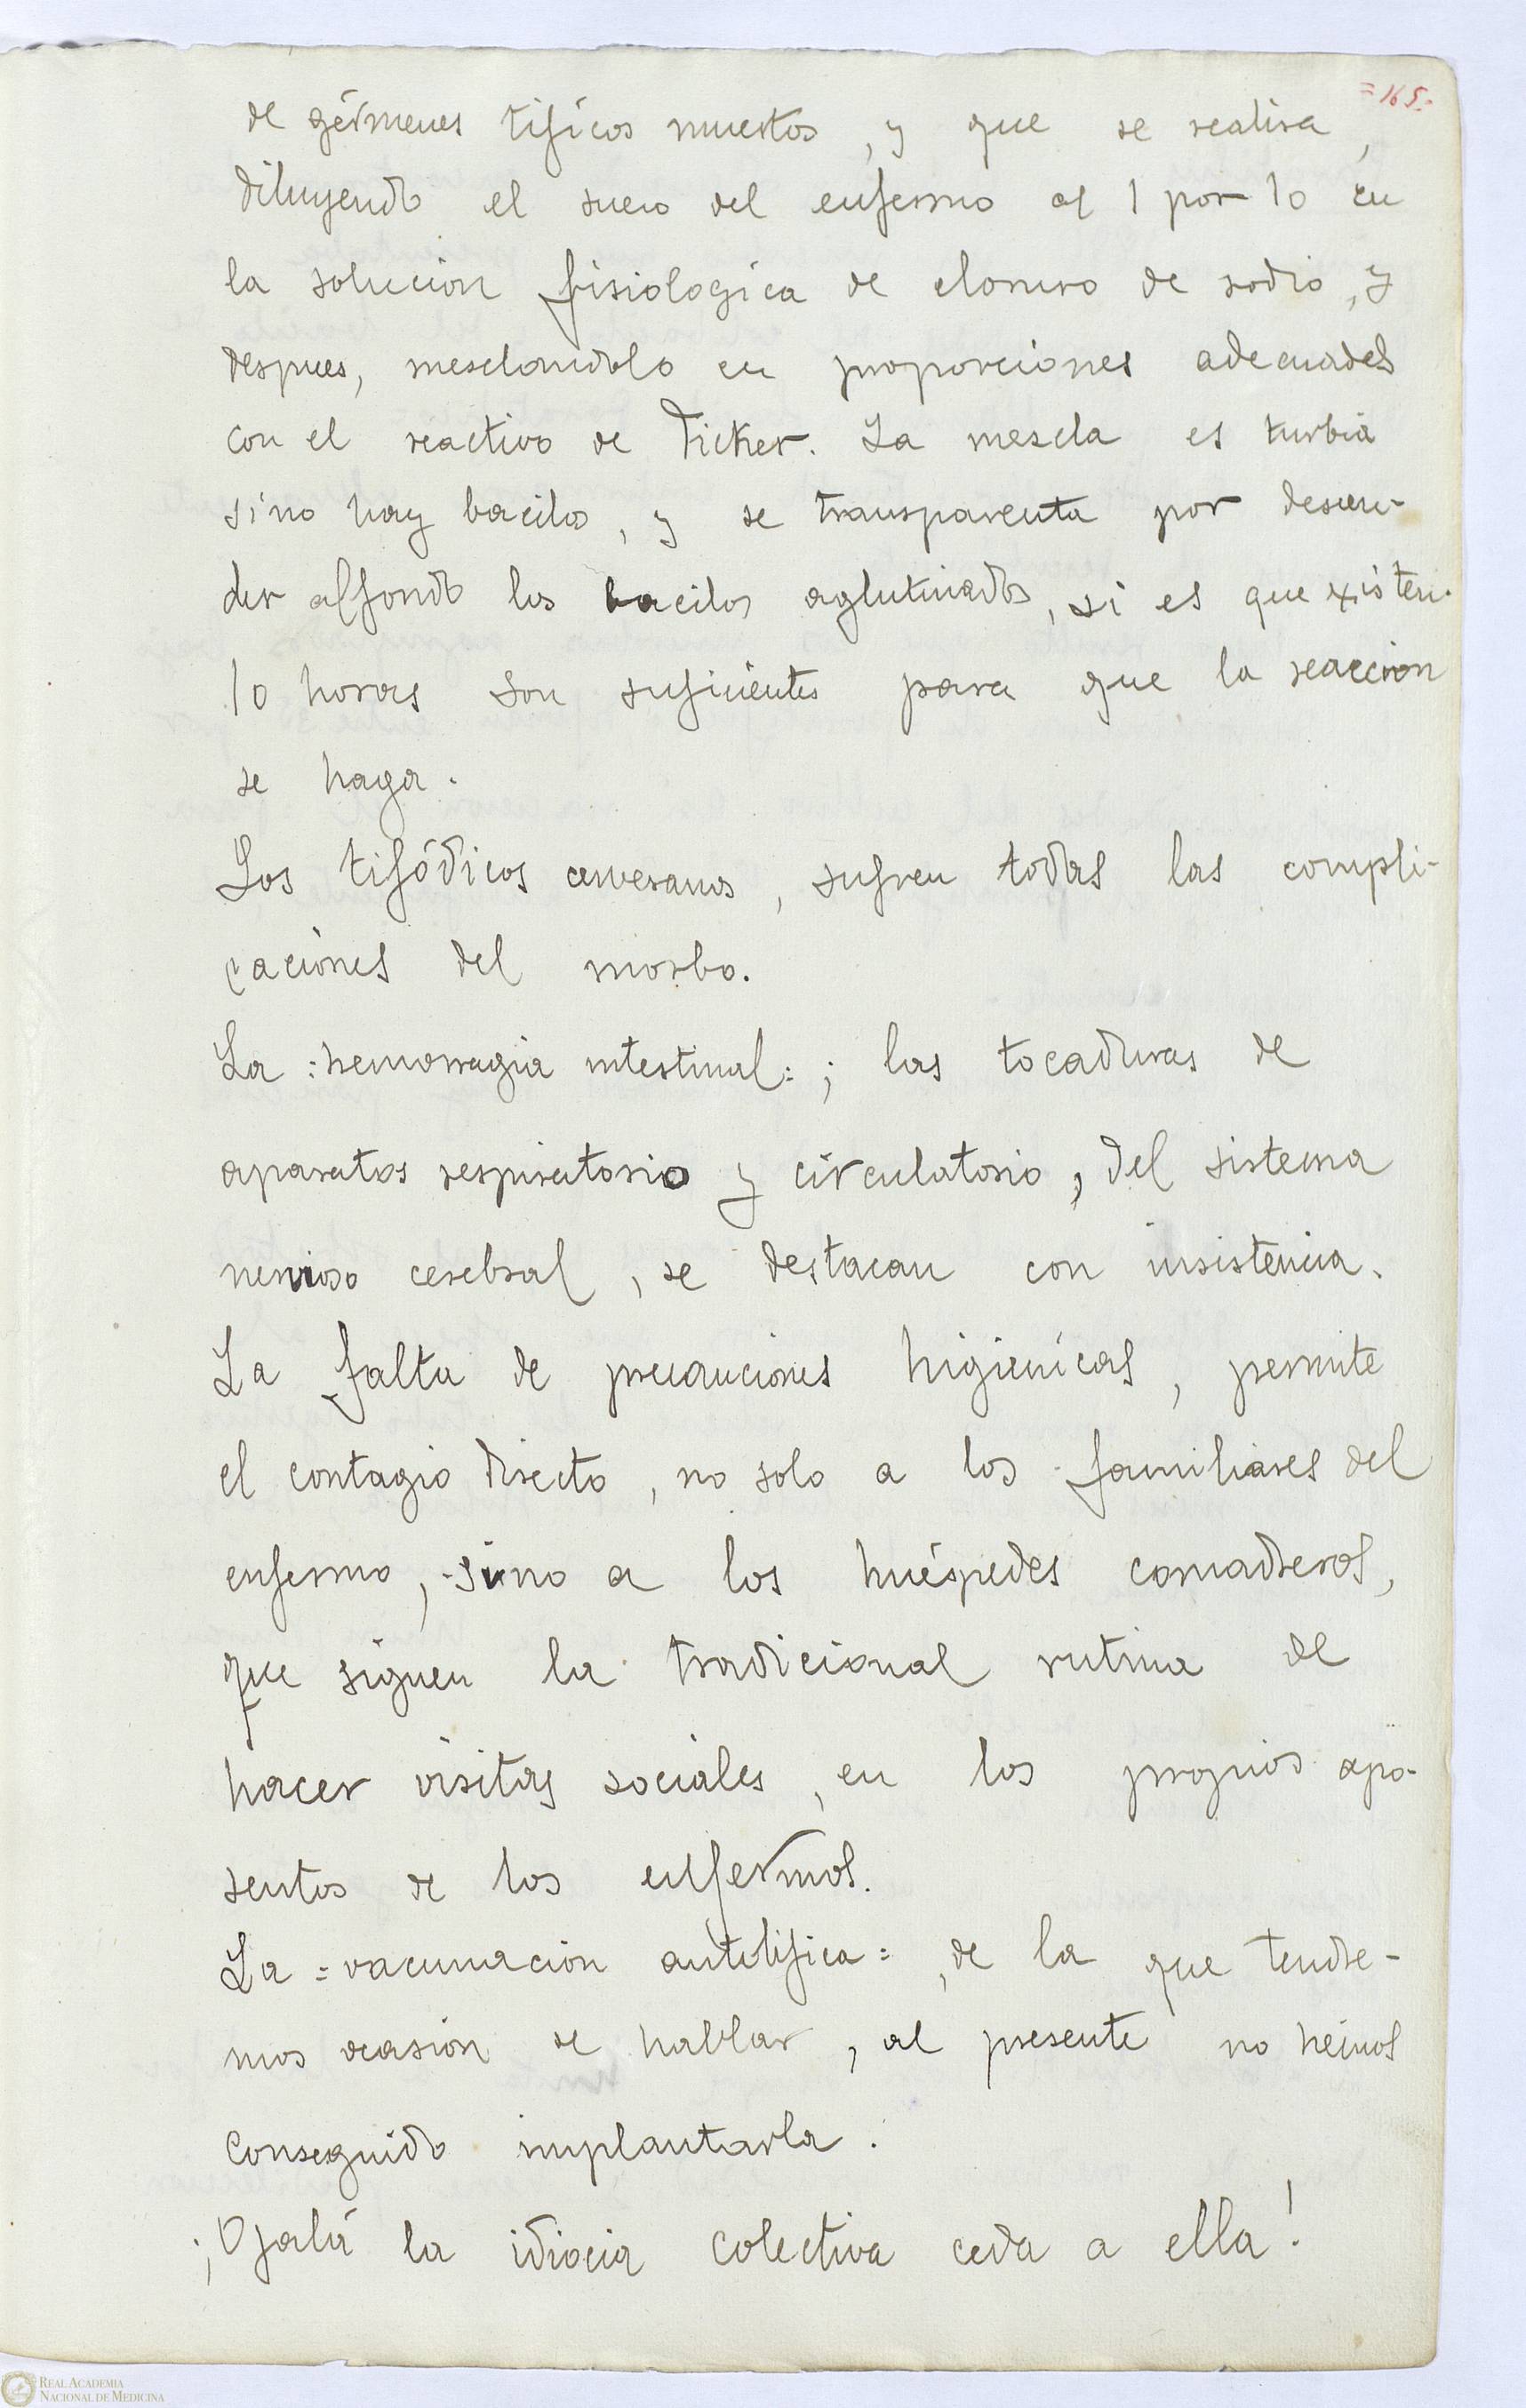 =165=
de gérmenes tíficos muertos, y que se realisa,
diluyendo el suero del enfermo al 1 por 10 en
la solucion fisiologíca de cloruro de sodio, y
despues, mesclandolo en proporciones adecuadas
con el reactivo de Ficker. La mescla es turbia
sino hay bacilos, y se transparenta por descen-
der al fondo los bacilos aglutinados, si es que existen.
10 horas son suficientes para que la reaccion
se haga.
Los tifódicos cerveranos, sufren todas las compli-
caciones del morbo.
La =hemorragia intestinal=; las tocaduras de
aparatos respiratorio y circulatorio, del sistema
nervioso cerebral, se destacan con insistencia.
La falta de precauciones higienícas, permite
el contagio directo, no solo a los familiares del
enfermo, sino a los huéspedes comadreros,
que siguen la tradicional rutina de
hacer visitas sociales, en los propios apo-
sentos de los enfermos.
La =vacunacion antitifica=, de la que tendre-
mos ocasion de hablar, al presente no hemos
conseguido implantarla.
¡Ojalá la idiocia colectiva ceda a ella!
REAL ACADEMIA
NACIONAL DE MEDICINA